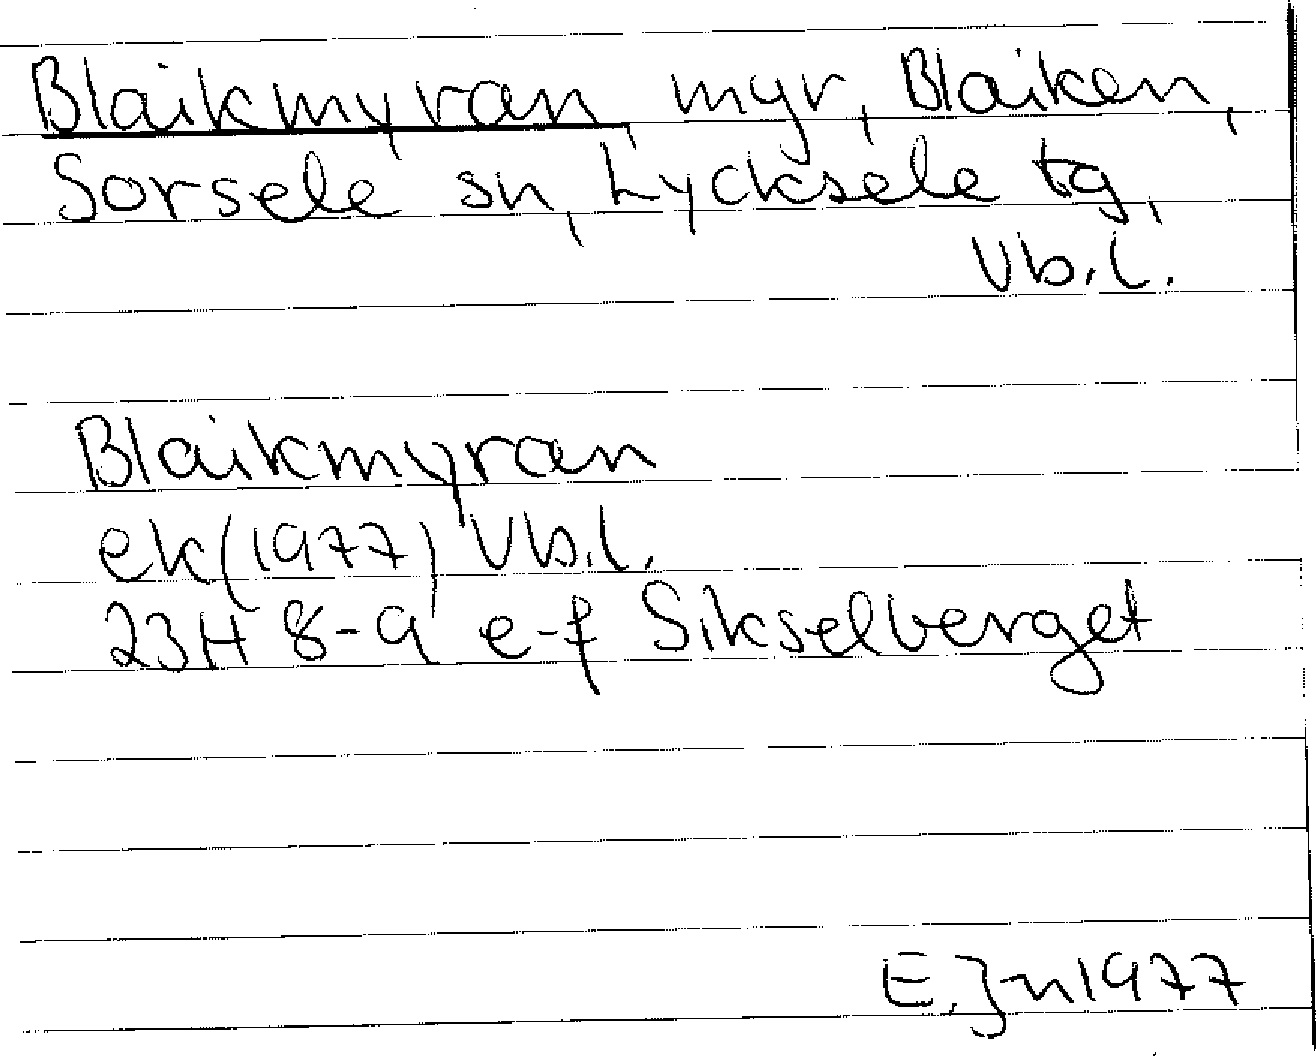 Blaikmyran, myr, Blaiken,
Sorsele sn, Lycksele tg,
Vb.l.
Blaikmyran
ek (1977) Vb.l.
23H 8-9 e-f Sikselberget
E. Jn 1977